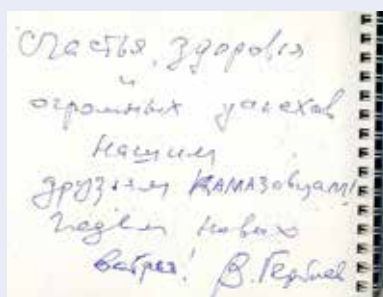 Счастья, здоровья
и
огромных успехов
нашим
друзьям КАМАЗовцам!
Ждем новых
встреч! В.